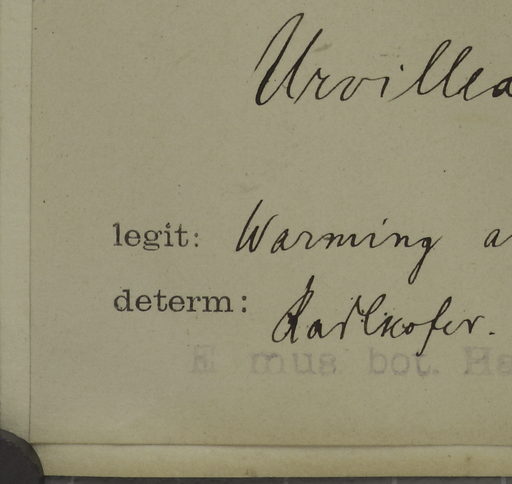 Urvillea
legit: Warming a
determ: Radlkofer.
E mus bot. Ha